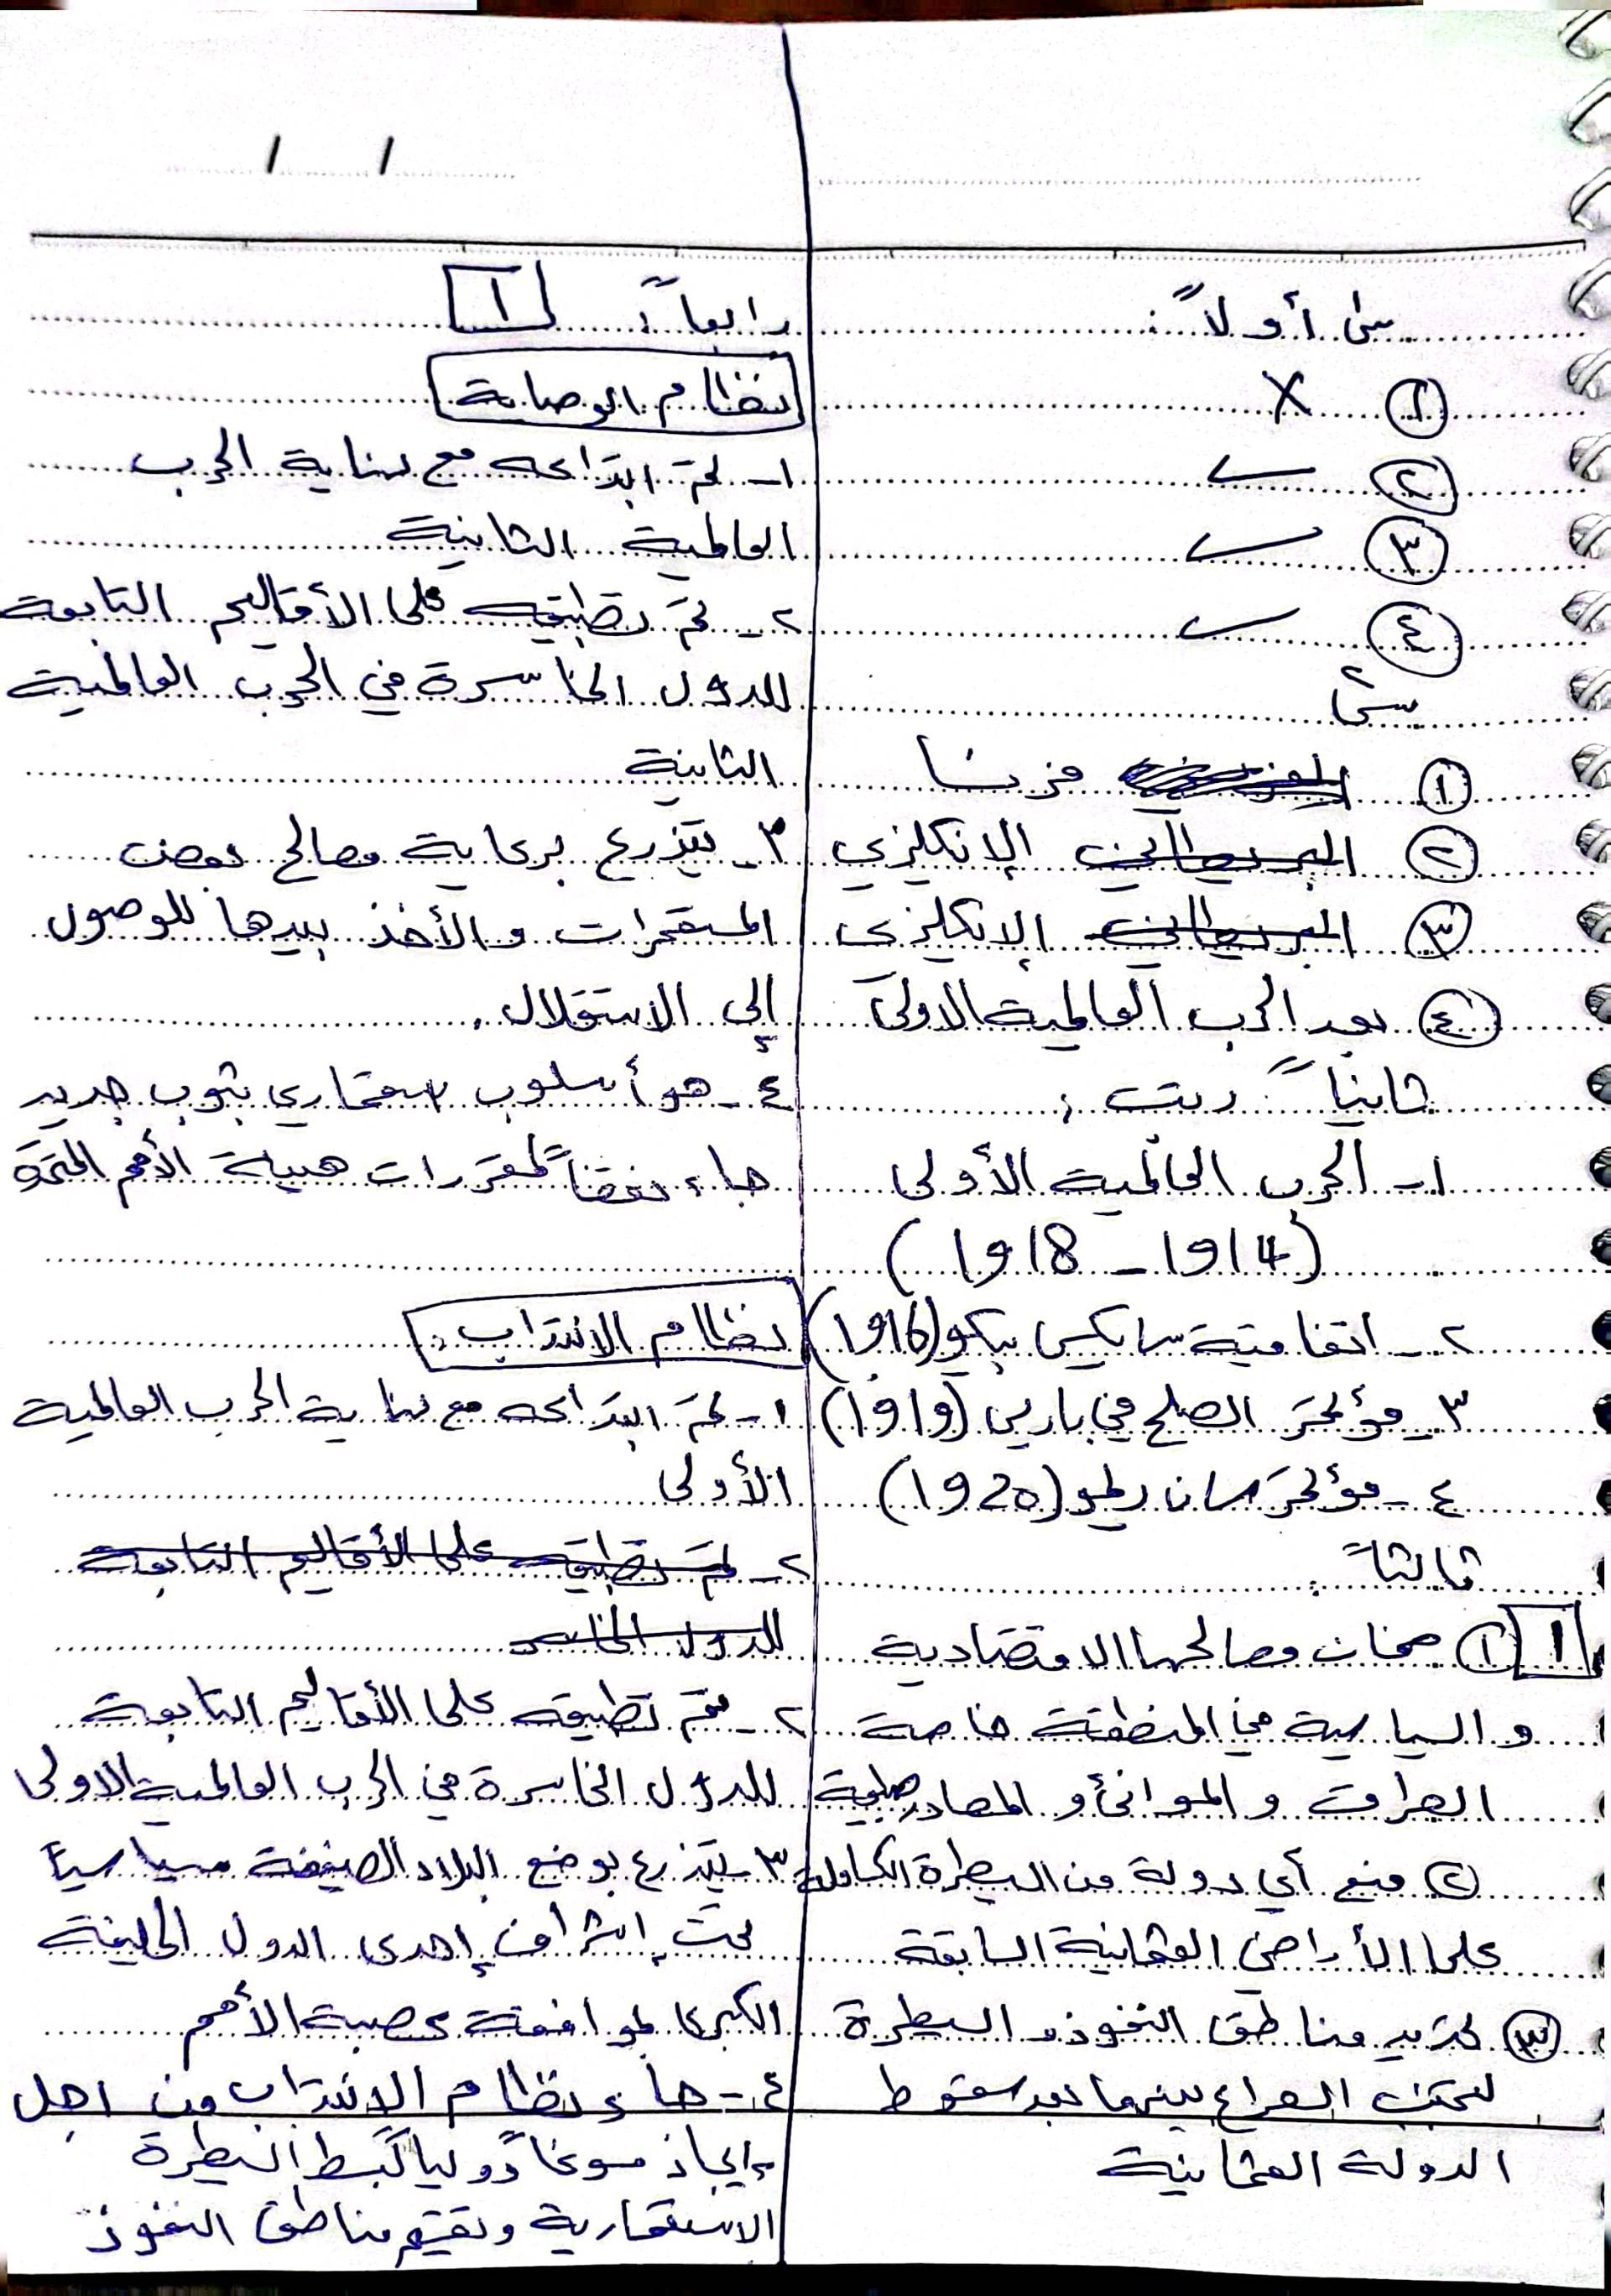 س١ أولاً:
١ X
٢ ✓
٣ ✓
٤ ✓
س٢
١ فرنسا
٢ البريطاني الإنكليزي
٣ البريطاني الإنكليزي
٤ بعد الحرب العالمية الاولى
ثانياً رتب:
١- الحرب العالمية الأولى
(1914 - 1918)
٢- اتفاقية سايكس بيكو (1916)
٣- مؤتمر الصلح في باريس (1919)
٤- مؤتمر سان ريمو (1920)
ثالثاً:
١ ١ ضمان مصالحها الاقتصادية
و السياسية في المنطقة خاصة
العراق و الموانئ و المصادر
٢ منع أي دولة من السيطرة الكاملة
على الأراضي العثمانية السابقة
٣ تحديد مناطق النفوذ و السيطرة
لتجنب الصراع بينهما بعد سقوط
الدولة العثمانية
رابعاً: ١
نظام الوصاية
١- تم ابتداعه مع نهاية الحرب
العالمية الثانية
٢- تم تطبيقه على الأقاليم التابعة
للدول الخاسرة في الحرب العالمية
الثانية
٣- يتذرع برعاية مصالح بعض
المستعمرات و الأخذ بيدها للوصول
إلى الاستقلال.
٤- هو أسلوب استعماري بثوب جديد
جاء نقضاً لمقررات هيئة الأمم المتحدة
نظام الانتداب:
١- تم ابتداعه مع نهاية الحرب العالمية
الأولى
٢- تم تطبيقه على الأقاليم التابعة
للدول الخاسر
٢- تم تطبيقه على الأقاليم التابعة
للدول الخاسرة في الحرب العالمية الاولى
٣- يتذرع بوضع البلاد الضعيفة سياسياً
تحت إشراف إحدى الدول الحليفة
الكبرى بموافقة عصبة الأمم
٤- جاء نظام الانتداب من اجل
إيجاد مسوغاً دولياً لبسط السيطرة
الاستعمارية وتقسيم مناطق النفوذ